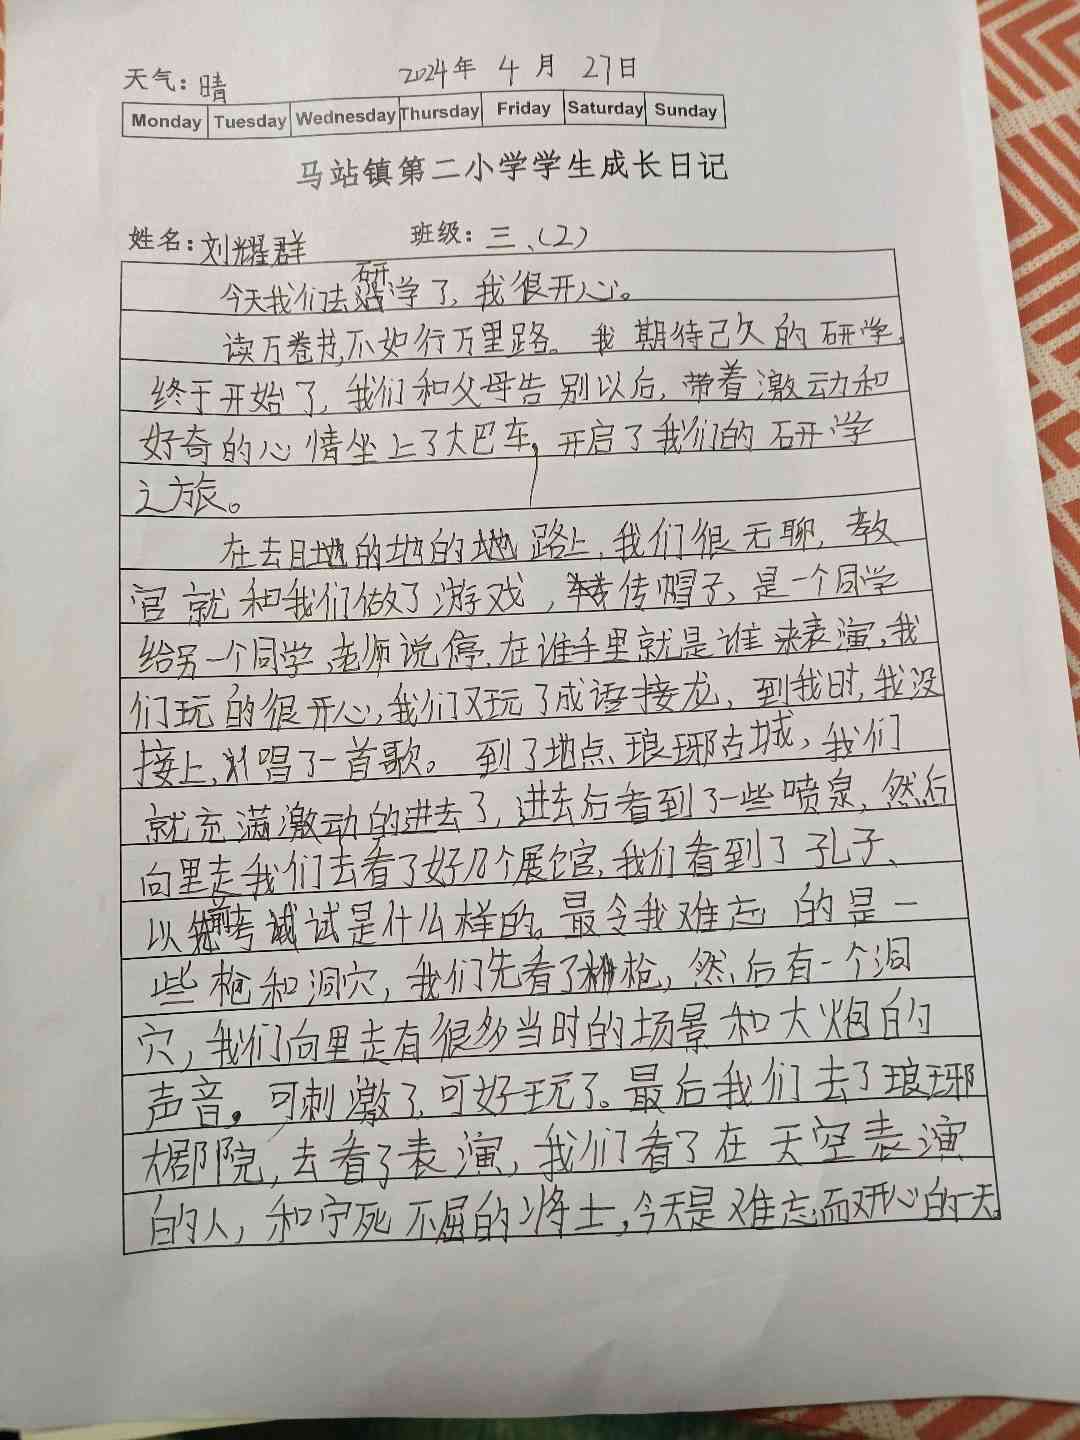 天气：晴 2024年 4月 27日
Monday Tuesday Wednesday Thursday Friday Saturday Sunday
马站镇第二小学学生成长日记
姓名：刘耀群 班级：三、（2）
今天我们去研学了，我很开心。
读万卷书，不如行万里路。我期待己久的研学，
终于开始了，我们和父母告别以后，带着激动和
好奇的心情坐上了大巴车，开启了我们的研学
之旅。
在去目地的地的地路上，我们很无聊，教
官就和我们做了游戏，传帽子、是一个同学
给另一个同学、老师说停、在谁手里就是谁来表演，我
们玩的很开心，我们又玩了成语接龙，到我时，我没
接上，唱了一首歌。到了地点琅琊古城，我们
就充满激动的进去了，进去后看到了一些喷泉，然后
向里走我们去看了好几个展馆，我们看到了孔子、
以前考试是什么样的。最令我难忘的是一
些枪和洞穴，我们先看了枪，然后有一个洞
穴，我们向里走有很多当时的场景和大炮的
声音。可刺激了，可好玩了。最后我们去了琅琊
大剧院，去看了表演，我们看了在天空表演
的人，和宁死不屈的将士，今天是难忘而又开心的一天。